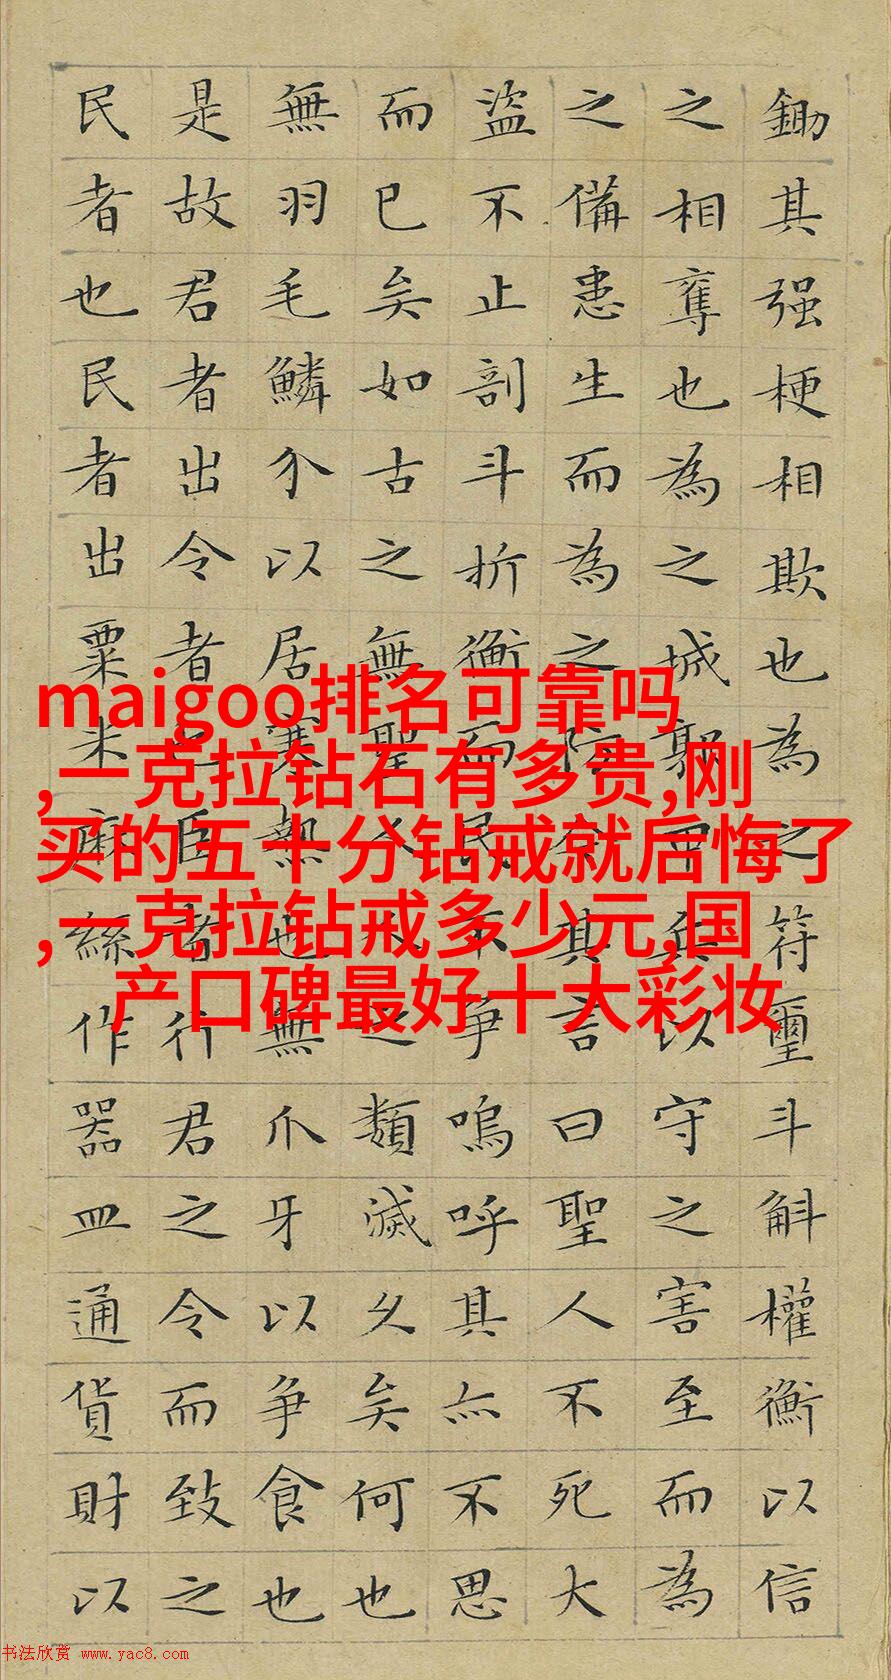 鋤其强梗相欺也為之符璽斗斛權衡以信
之相奪也為之城郭甲兵以守之害至而為
之備患生而為之防今其言曰聖人不死大
盜不止剖斗折衡而民不爭嗚呼其亦不思
而已矣如古之無聖人人之類滅久矣何也
無羽毛鱗介以居寒熱也無爪牙以爭食也
是故君者出令者也臣者行君之令而致之
民者也民者出粟米麻絲作器皿通貨財以
maigoo排名可靠吗
,一克拉钻石有多贵,刚
买的五十分钻戒就后悔了
,一克拉钻戒多少元,国
产口碑最好十大彩妆
书法欣赏 www.yac8.com